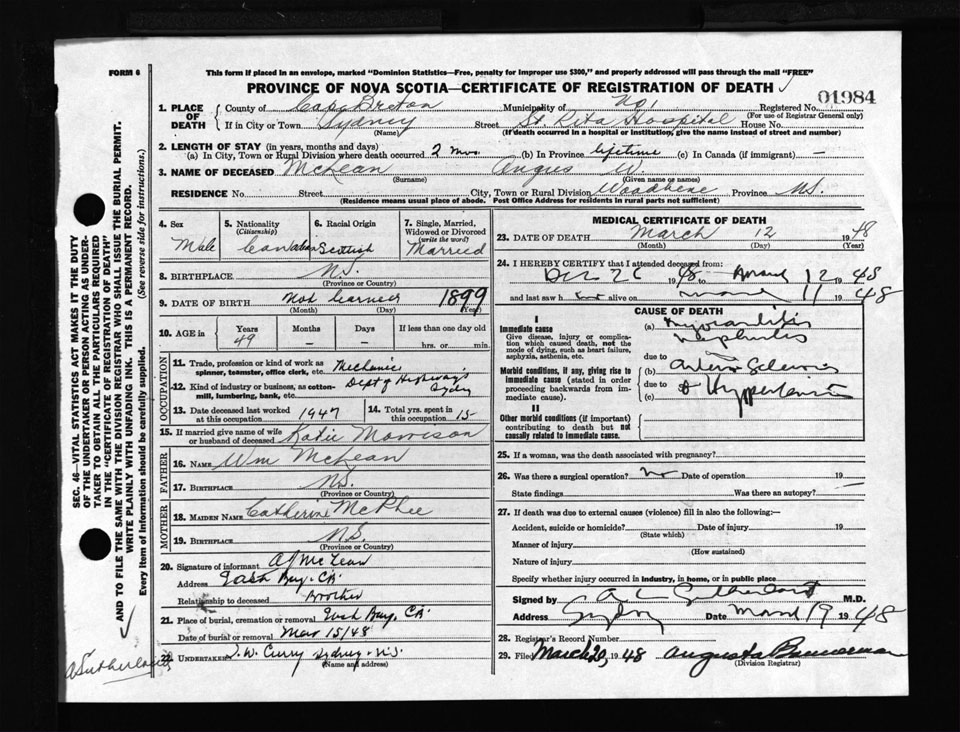 FORM 6
This form if placed in an envelope, marked "Dominion Statistics—Free, penalty for improper use $300," and properly addressed will pass through the mail "FREE"
PROVINCE OF NOVA SCOTIA—CERTIFICATE OF REGISTRATION OF DEATH
01984
1. PLACE OF DEATH
County of Cape Breton Municipality of No. 1 Registered No.
(For use of Registrar General only)
If in City or Town Sydney Street St. Rita Hospital House No.
(Name) (If death occurred in a hospital or institution, give the name instead of street and number)
2. LENGTH OF STAY (in years, months and days)
(a) In City, Town or Rural Division where death occurred 2 mos. (b) In Province lifetime (c) In Canada (if immigrant) —
3. NAME OF DECEASED McLean Angus W.
(Surname) (Given name or names)
RESIDENCE No. Street City, Town or Rural Division Woodbine Province N.S.
(Residence means usual place of abode. Post Office Address for residents in rural parts not sufficient)
4. Sex
Male
5. Nationality
(Citizenship)
Canadian
6. Racial Origin
Scottish
7. Single, Married, Widowed or Divorced
(write the word)
Married
8. BIRTHPLACE N.S.
(Province or Country)
9. DATE OF BIRTH Not learned 1899
(Month) (Day) (Year)
10. AGE in Years Months Days If less than one day old
49 — — hrs. or min.
OCCUPATION
11. Trade, profession or kind of work as spinner, teamster, office clerk, etc. Mechanic
12. Kind of industry or business, as cotton-mill, lumbering, bank, etc. Dept of Highways Sydney
13. Date deceased last worked at this occupation 1947
14. Total yrs. spent in this occupation 15
15. If married give name of wife or husband of deceased Katie Morrison
FATHER
16. NAME Wm McLean
17. BIRTHPLACE N.S.
(Province or Country)
MOTHER
18. MAIDEN NAME Catherine McPhee
19. BIRTHPLACE N.S.
(Province or Country)
20. Signature of informant A J McLean
Address Bay, C.B.
Relationship to deceased Brother
21. Place of burial, cremation or removal Bay, C.B.
Date of burial or removal Mar 15/48
22. UNDERTAKER W. Curry Sydney N.S.
(Name and address)
MEDICAL CERTIFICATE OF DEATH
23. DATE OF DEATH March 12 1948
(Month) (Day) (Year)
24. I HEREBY CERTIFY that I attended deceased from:
Dec 26 19 12 1948
and last saw h alive on 11 1948
CAUSE OF DEATH
I
Immediate cause
Give disease, injury or complication which caused death, not the mode of dying, such as heart failure, asphyxia, asthenia, etc.
(a) Myocarditis
Nephritis
due to
Morbid conditions, if any, giving rise to immediate cause (stated in order proceeding backwards from immediate cause).
(b) Arterio Sclerosis
due to
(c) & Hypertension
II
Other morbid conditions (if important) contributing to death but not causally related to immediate cause.
25. If a woman, was the death associated with pregnancy?
26. Was there a surgical operation? no Date of operation 19
State findings Was there an autopsy?
27. If death was due to external causes (violence) fill in also the following:—
Accident, suicide or homicide? Date of injury 19
(State which)
Manner of injury
(How sustained)
Nature of injury
Specify whether injury occurred in industry, in home, or in public place
Signed by A L Sutherland M.D.
Address Sydney Date March 19 1948
28. Registrar's Record Number
29. Filed March 20, 1948 Augusta Bannerman
(Division Registrar)
SEC. 46—VITAL STATISTICS ACT MAKES IT THE DUTY OF THE UNDERTAKER OR PERSON ACTING AS UNDERTAKER TO OBTAIN ALL THE PARTICULARS REQUIRED IN THE "CERTIFICATE OF REGISTRATION OF DEATH" AND TO FILE THE SAME WITH THE DIVISION REGISTRAR WHO SHALL ISSUE THE BURIAL PERMIT.
WRITE PLAINLY WITH UNFADING INK. THIS IS A PERMANENT RECORD.
Every item of information should be carefully supplied. (See reverse side for instructions.)
A Sutherland